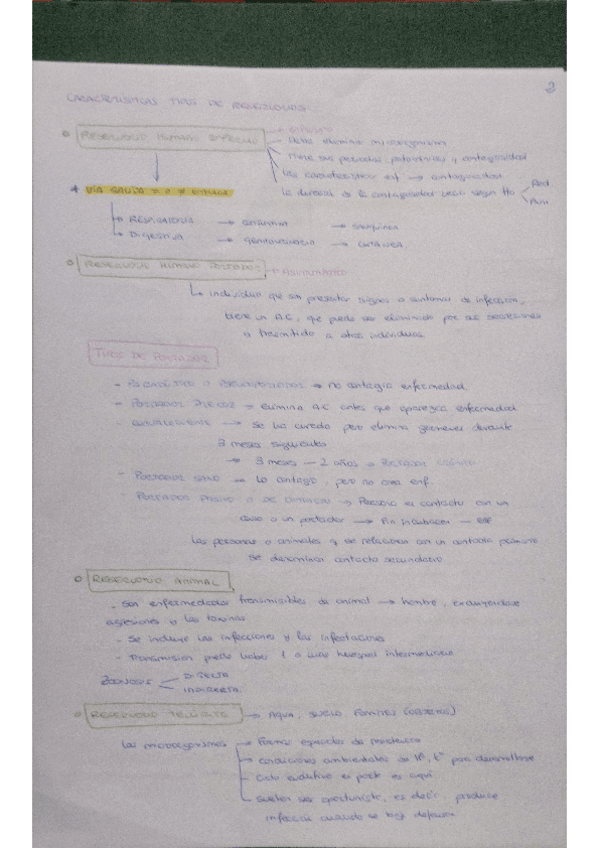 2
CARACTERISTICAS TIPOS DE RESERVORIOS
RESERVORIO HUMANO ENFERMO
Tiene sus periodos patogénicos y contagiosidad
enf → contagiosidad
la duración de la contagiosidad según Mo
VÍA SALIDA
RESPIRATORIA →
DIGESTIVA → → CUTÁNEA
RESERVORIO HUMANO PORTADOR → ASINTOMÁTICO
individuo que sin presentar signos o síntomas de infección,
tiene un A.C, que puede ser eliminado por sus secreciones
o trasmitido a otros individuos.
TIPOS DE PORTADOR
- PARADÓJICO O → no contagia enfermedad
- PORTADOR → elimina A.C antes que aparezca enfermedad
- CONVALECIENTE → Se ha curado pero elimina gérmenes durante
3 meses siguientes
→ 3 meses — 2 años → PORTADOR CRÓNICO
- PORTADOR SANO → Lo contagia, pero no crea enf.
- PORTADOR PASIVO O DE CONTACTO → Persona en contacto con un
caso o un portador → Fin incubación —
Las personas o animales q se relacionan con un contacto primario
se denominan contacto secundario
RESERVORIO ANIMAL
- Son enfermedades transmisibles de animal → hombre, exceptuándose
agresiones o las toxinas
- Se incluye las infecciones y las infestaciones
- Transmision puede haber 1 o más huesped intermediario
ZOONOSIS DIRECTA
INDIRECTA
RESERVORIO TELÚRICO → AGUA, SUELO, FOMITES (OBJETOS)
Las microorganismos → Formas esporuladas de resistencia
→ Condiciones ambientales de Hª, tª para desarrollarse
→ Ciclo evolutivo en parte es aquí
→ Suelen ser oportunista, es decir, produce
infección cuando se baja defensa